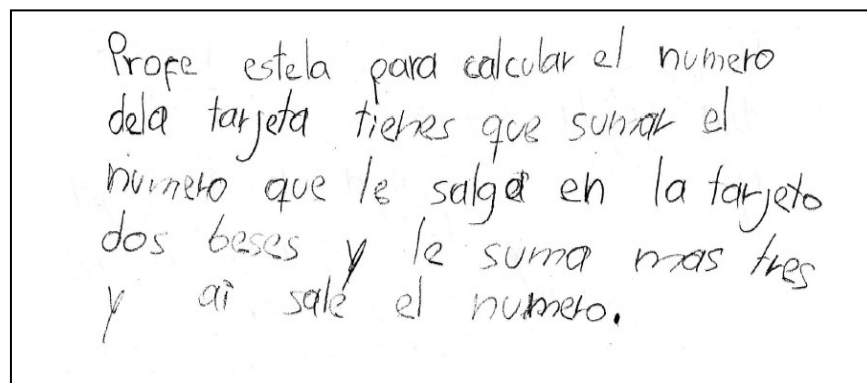 Profe estela para calcular el numero
dela tarjeta tienes que sumar el
numero que le salga en la tarjeta
dos beses y le suma mas tres
y ai sale el numero.